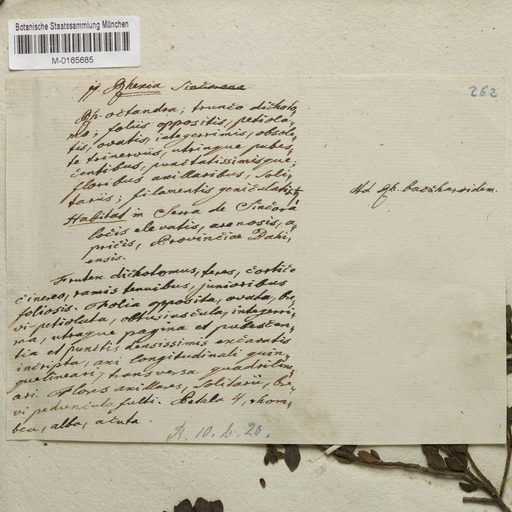 Botanische Staatssammlung München
M-0165685
262
Rhexia Sincorana
Rh. octandra; trunco dichoto-
mo; foliis oppositis, petiola-
tis, ovatis, integerrimis, obsole-
te trinerviis, utrinque pubes-
centibus, punctatissimisque;
floribus axillaribus, soli-
tariis; filamentis geniculatis.
Habitat in Serra de Sincorá
locis elevatis, arenosis, a-
pricis, Provinciae Bahi-
ensis.
Frutex dichotomus, teres, cortice
cinereo, ramis tenuibus, junioribus
foliosis. Folia opposita, ovata, bre-
vi petiolata, obtusiuscula, integerri-
ma, utraque pagina et pubescen-
tia et punctis densissimis excavatis
inscripta, axi longitudinali quin-
quelineari, transversa quadriline-
ari. Flores axillares, solitarii, bre-
vi pedunculo fulti. Petala 4, rhom-
bea, alba, acuta.
Ad Rh. baccharoidem.
R. 10. b. 20.